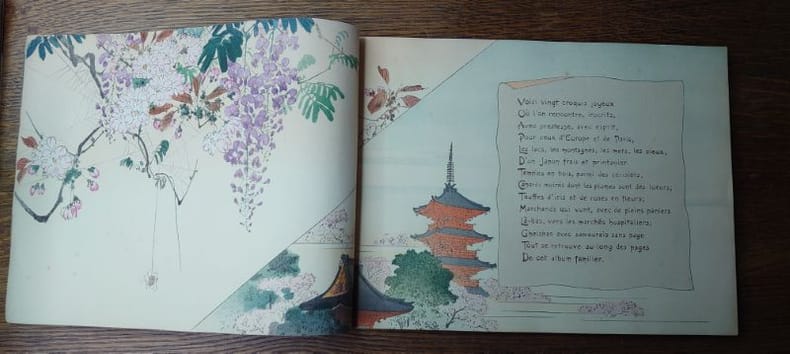 Voici vingt croquis joyeux
Où l'on rencontre, inscrits,
Avec prestesse, avec esprit,
Pour ceux d'Europe et de Paris,
Les lacs, les montagnes, les mers, les cieux,
D'un Japon frais et printanier.
Temples en bois, parmi des cerisiers,
Canards moirés dont les plumes sont des lueurs;
Touffes d'iris et de roses en fleurs;
Marchands qui vont, avec de pleins paniers
Là-bas, vers les marchés hospitaliers;
Gheishas avec samouraïs sans page
Tout se retrouve au long des pages
De cet album familier.